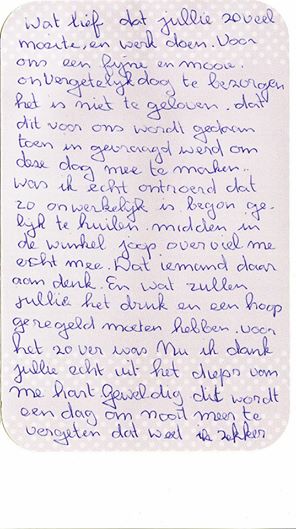 Wat lief dat jullie zoveel
moeite en werk doen. Voor
ons een fijne en mooie.
onvergetelijk dag te bezorgen
het is niet te geloven. dat
dit voor ons wordt gedaan
toen ik gevraagd werd om
deze dag mee te maken..
was ik echt ontroerd dat
zo onwerkelijk is begon ge-
lijk te huilen. midden in
de winkel joop overviel me
echt mee. Dat iemand daar
aan denk. En wat zullen
jullie het druk en een hoop
geregeld moeten hebben. voor
het zo ver was Nu ik dank
jullie echt uit het dieps van
me hart Geweldig dit wordt
een dag om nooit meer te
vergeten dat weet is zekker